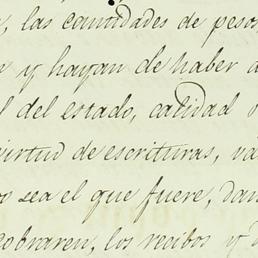 , las cantidades de peso
y hayan de haber a
l del estado, calidad o
virtud de escrituras, va
os sea el que fuere, dan
cobraren, los recibos y